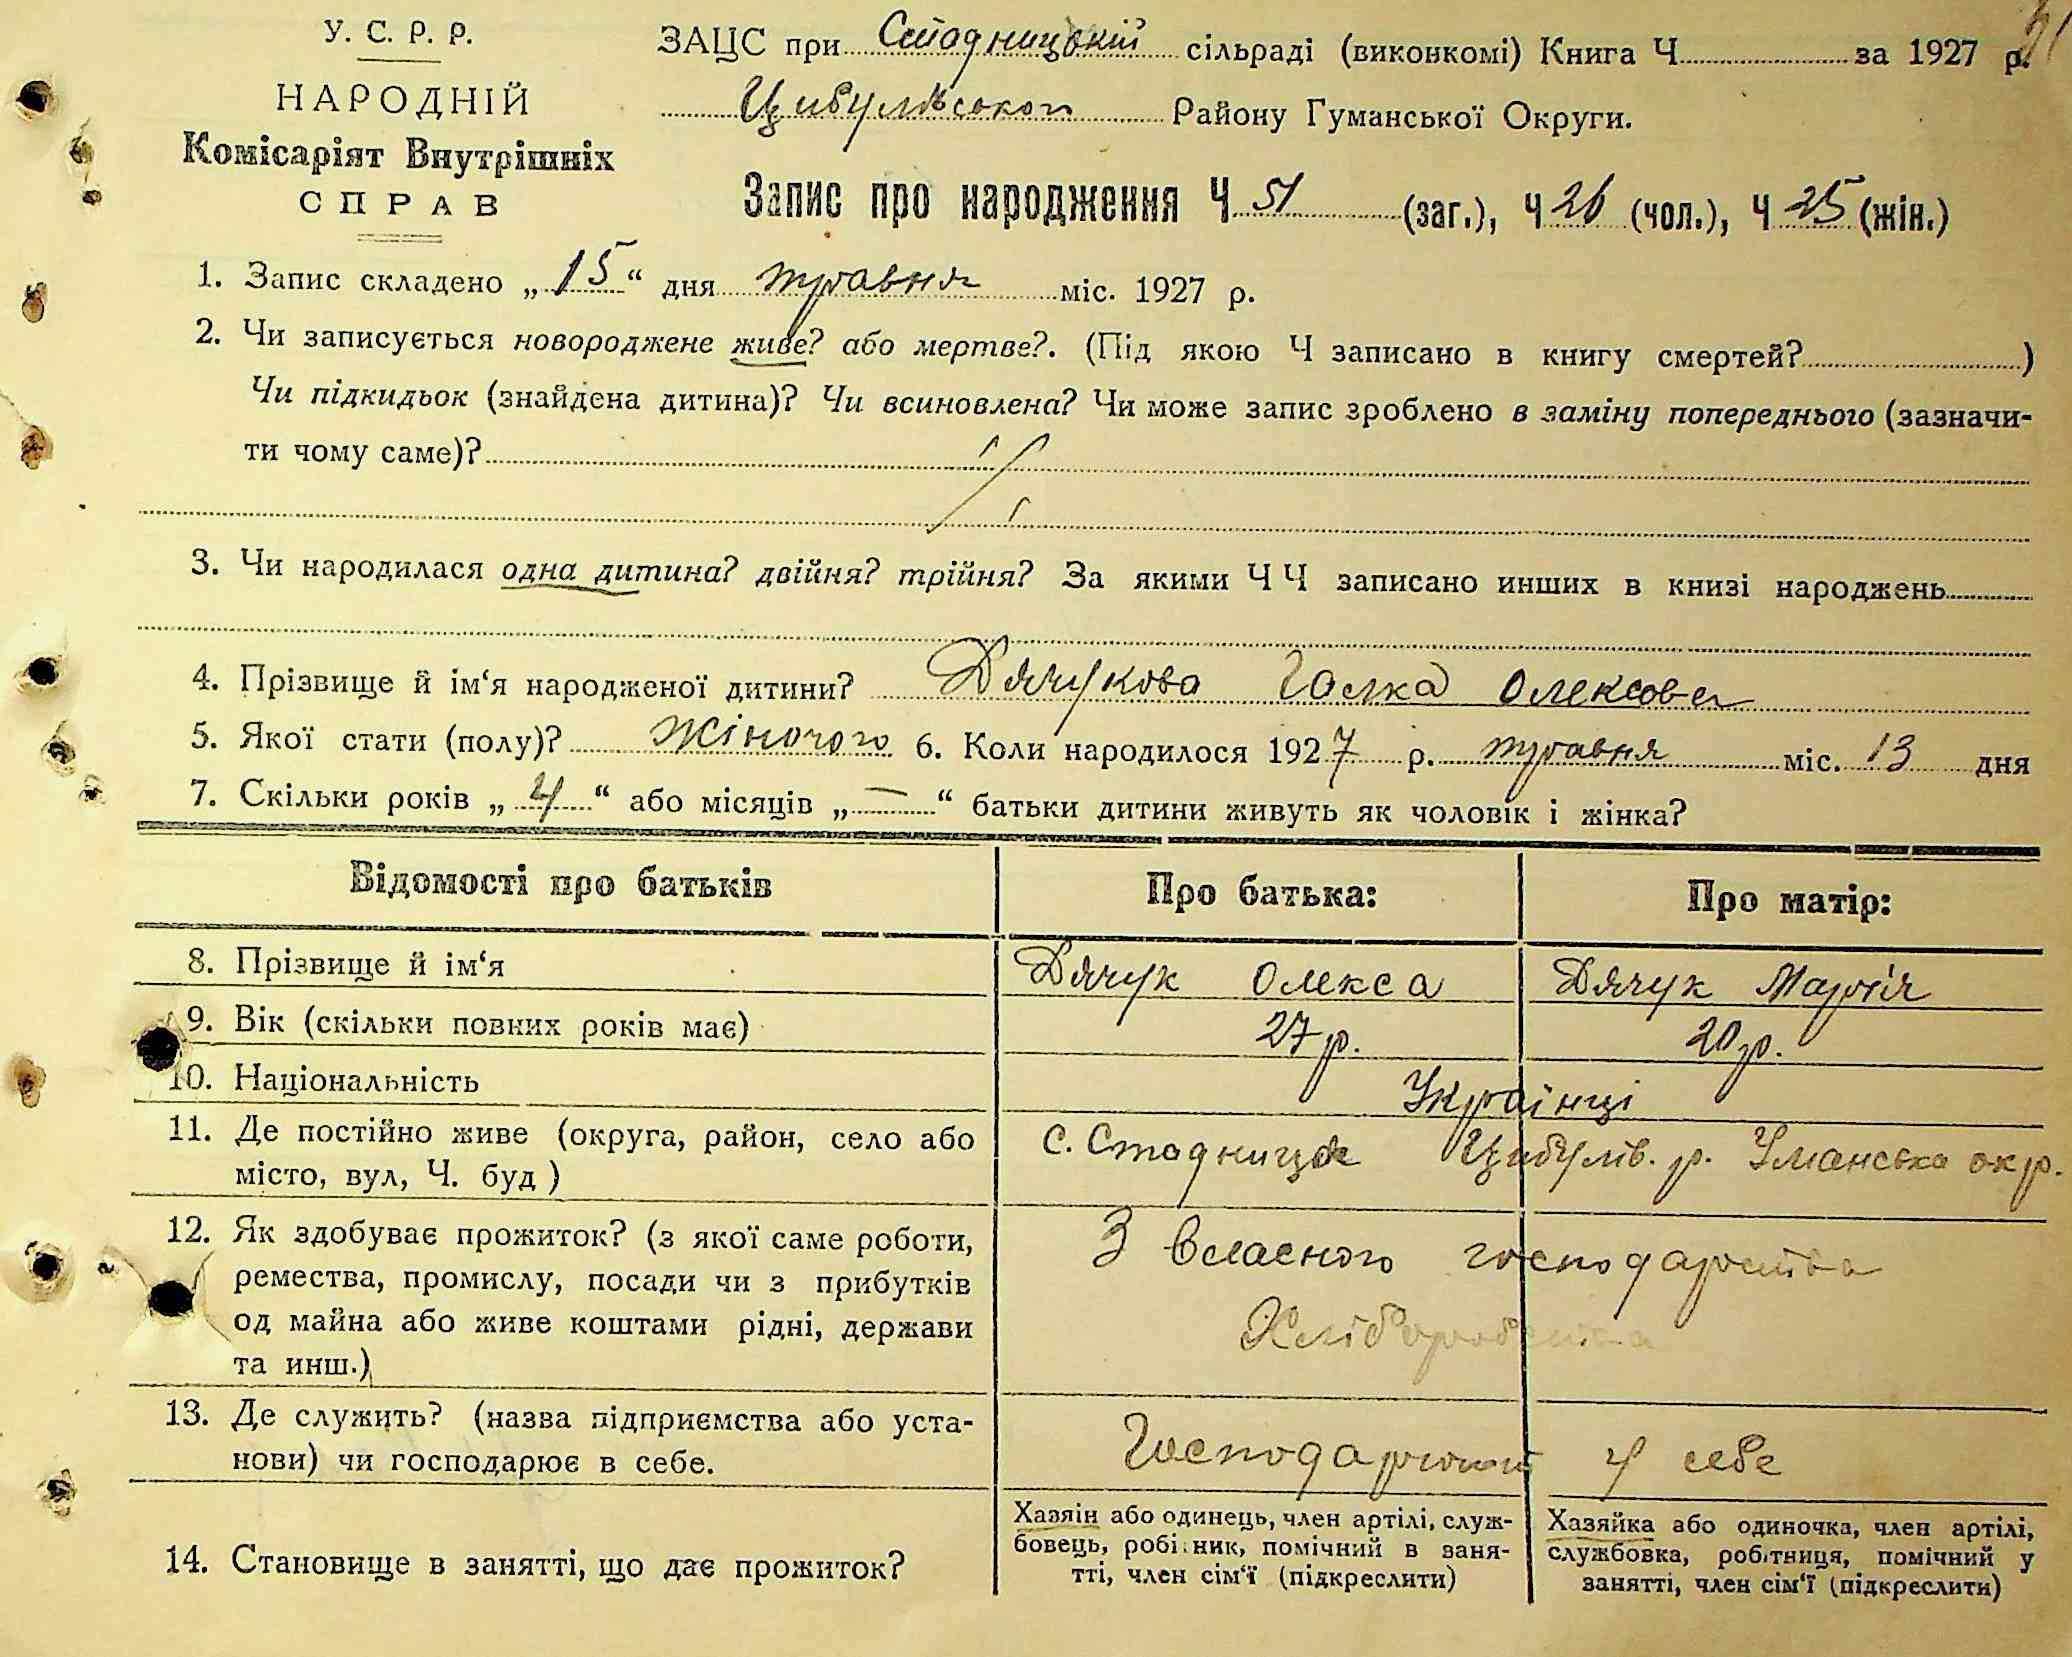 У. С. Р. Р.
НАРОДНІЙ
Комісаріят Внутрішніх
СПРАВ
ЗАЦС при Стадницькій сільраді (виконкомі) Книга Ч за 1927 р.
Цибулівського Району Гуманської Округи.
Запис про народження Ч 51 (заг.), Ч 26 (чол.), Ч 25 (жін.)
1. Запис складено „15“ дня травня міс. 1927 р.
2. Чи записується новороджене живе? або мертве?. (Під якою Ч записано в книгу смертей? )
Чи підкидьок (знайдена дитина)? Чи всиновлена? Чи може запис зроблено в заміну попереднього (зазначи-
ти чому саме)?
3. Чи народилася одна дитина? двійня? трійня? За якими Ч Ч записано инших в книзі народжень
4. Прізвище й ім‘я народженої дитини? Дячукова Галка Олексова
5. Якої стати (полу)? Жіночого 6. Коли народилося 1927 р. травня міс. 13 дня
7. Скільки років „4“ або місяців „—“ батьки дитини живуть як чоловік і жінка?
Відомості про батьків Про батька: Про матір:
8. Прізвище й ім‘я Дячук Олекса Дячук Марія
9. Вік (скільки повних років має) 27 р. 20 р.
10. Національність Українці
11. Де постійно живе (округа, район, село або
місто, вул, Ч. буд ) с. Стадниця Цибулів. р. Уманська окр.
12. Як здобуває прожиток? (з якої саме роботи,
ремества, промислу, посади чи з прибутків
од майна або живе коштами рідні, держави
та инш.)
З власного господарства
Хліборобства
13. Де служить? (назва підприємства або уста-
нови) чи господарює в себе.
Господарюют у себе
14. Становище в занятті, що дає прожиток?
Хазяїн або одинець, член артілі, служ-
бовець, робітник, помічний в заня-
тті, член сім‘ї (підкреслити)
Хазяйка або одиночка, член артілі,
службовка, робітниця, помічний у
занятті, член сім‘ї (підкреслити)